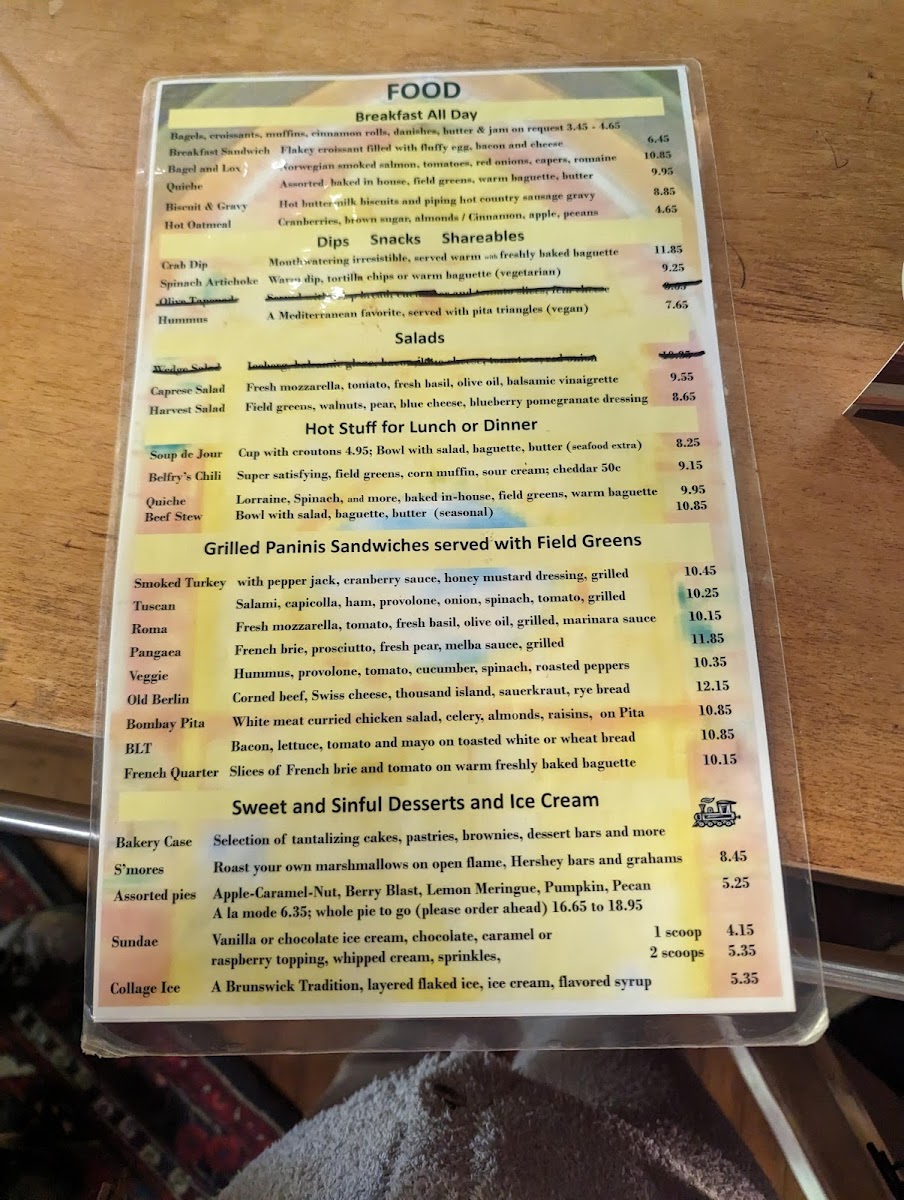 FOOD
Breakfast All Day
Bagels, croissants, muffins, cinnamon rolls, danishes, butter & jam on request 3.45 - 4.65
Breakfast Sandwich Flakey croissant filled with fluffy egg, bacon and cheese 6.45
Bagel and Lox Norwegian smoked salmon, tomatoes, red onions, capers, romaine 10.85
Quiche Assorted, baked in house, field greens, warm baguette, butter 9.95
Biscuit & Gravy Hot buttermilk biscuits and piping hot country sausage gravy 8.85
Hot Oatmeal Cranberries, brown sugar, almonds / Cinnamon, apple, pecans 4.65
Dips Snacks Shareables
Crab Dip Mouthwatering irresistible, served warm with freshly baked baguette 11.85
Spinach Artichoke Warm dip, tortilla chips or warm baguette (vegetarian) 9.25
Olive Tapenade
Hummus A Mediterranean favorite, served with pita triangles (vegan) 7.65
Salads
Wedge Salad
Caprese Salad Fresh mozzarella, tomato, fresh basil, olive oil, balsamic vinaigrette 9.55
Harvest Salad Field greens, walnuts, pear, blue cheese, blueberry pomegranate dressing 8.65
Hot Stuff for Lunch or Dinner
Soup de Jour Cup with croutons 4.95; Bowl with salad, baguette, butter (seafood extra) 8.25
Belfry's Chili Super satisfying, field greens, corn muffin, sour cream; cheddar 50c 9.15
Quiche Lorraine, Spinach, and more, baked in-house, field greens, warm baguette 9.95
Beef Stew Bowl with salad, baguette, butter (seasonal) 10.85
Grilled Paninis Sandwiches served with Field Greens
Smoked Turkey with pepper jack, cranberry sauce, honey mustard dressing, grilled 10.45
Tuscan Salami, capicolla, ham, provolone, onion, spinach, tomato, grilled 10.25
Roma Fresh mozzarella, tomato, fresh basil, olive oil, grilled, marinara sauce 10.15
Pangaea French brie, prosciutto, fresh pear, melba sauce, grilled 11.85
Veggie Hummus, provolone, tomato, cucumber, spinach, roasted peppers 10.35
Old Berlin Corned beef, Swiss cheese, thousand island, sauerkraut, rye bread 12.15
Bombay Pita White meat curried chicken salad, celery, almonds, raisins, on Pita 10.85
BLT Bacon, lettuce, tomato and mayo on toasted white or wheat bread 10.85
French Quarter Slices of French brie and tomato on warm freshly baked baguette 10.15
Sweet and Sinful Desserts and Ice Cream
Bakery Case Selection of tantalizing cakes, pastries, brownies, dessert bars and more
S'mores Roast your own marshmallows on open flame, Hershey bars and grahams 8.45
Assorted pies Apple-Caramel-Nut, Berry Blast, Lemon Meringue, Pumpkin, Pecan 5.25
A la mode 6.35; whole pie to go (please order ahead) 16.65 to 18.95
Sundae Vanilla or chocolate ice cream, chocolate, caramel or 1 scoop 4.15
raspberry topping, whipped cream, sprinkles, 2 scoops 5.35
Collage Ice A Brunswick Tradition, layered flaked ice, ice cream, flavored syrup 5.35